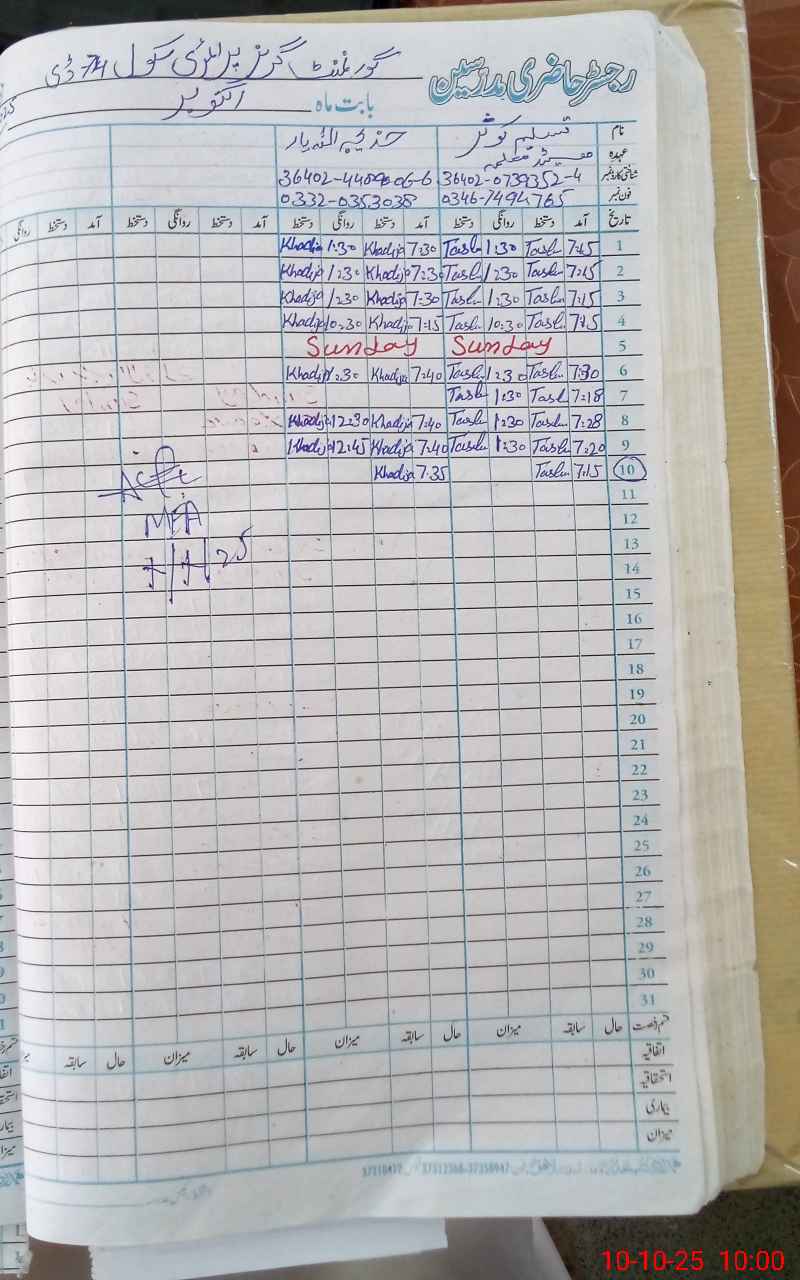 رجسٹر حاضری مدرسین
گورنمنٹ گرلز پرائمری سکول 74 ڈی
بابت ماہ اکتوبر
نام تسلیم کوثر خدیجہ اللہ یار
عہدہ
شناختی کارڈ نمبر 36402-0739352-4 36402-4489606-6
فون نمبر 0346-7494765 0332-0353038
تاریخ آمد دستخط روانگی دستخط آمد دستخط روانگی دستخط آمد دستخط روانگی دستخط آمد دستخط روانگی
1 7:15 Tasl 1:30 Tasl 7:30 Khadija 1:30 Khadija
2 7:15 Tasl 1:30 Tasl 7:30 Khadija 1:30 Khadija
3 7:15 Tasl 1:30 Tasl 7:30 Khadija 1:30 Khadija
4 7:15 Tasl 10:30 Tasl 7:15 Khadija 10:30 Khadija
5 Sunday Sunday
6 7:30 Tasl 1:30 Tasl 7:40 Khadija 1:30 Khadija
7 7:18 Tasl 1:30 Tasl
8 7:28 Tasl 1:30 Tasl 7:40 Khadija 12:30 Khadija
9 7:20 Tasl 1:30 Tasl 7:40 Khadija 12:45 Khadija
10 7:15 Tasl 7:35 Khadija
11
12
MEA
13
14
15
16
17
18
19
20
21
22
23
24
25
26
27
28
29
30
31
قسم رخصت حال سابقہ میزان حال سابقہ میزان حال سابقہ میزان حال سابقہ
اتفاقیہ
استحقاقیہ
بیماری
میزان
10-10-25 10:00